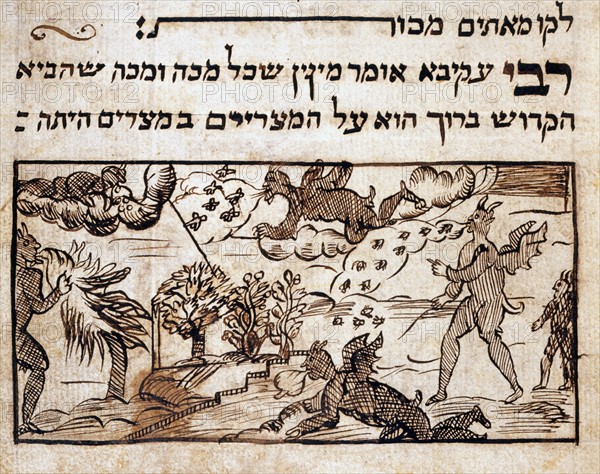 לקו מאתים מכות:
רבי עקיבא אומר מינין שכל מכה ומכה שהביא
הקדוש ברוך הוא על המצריים במצרים היתה